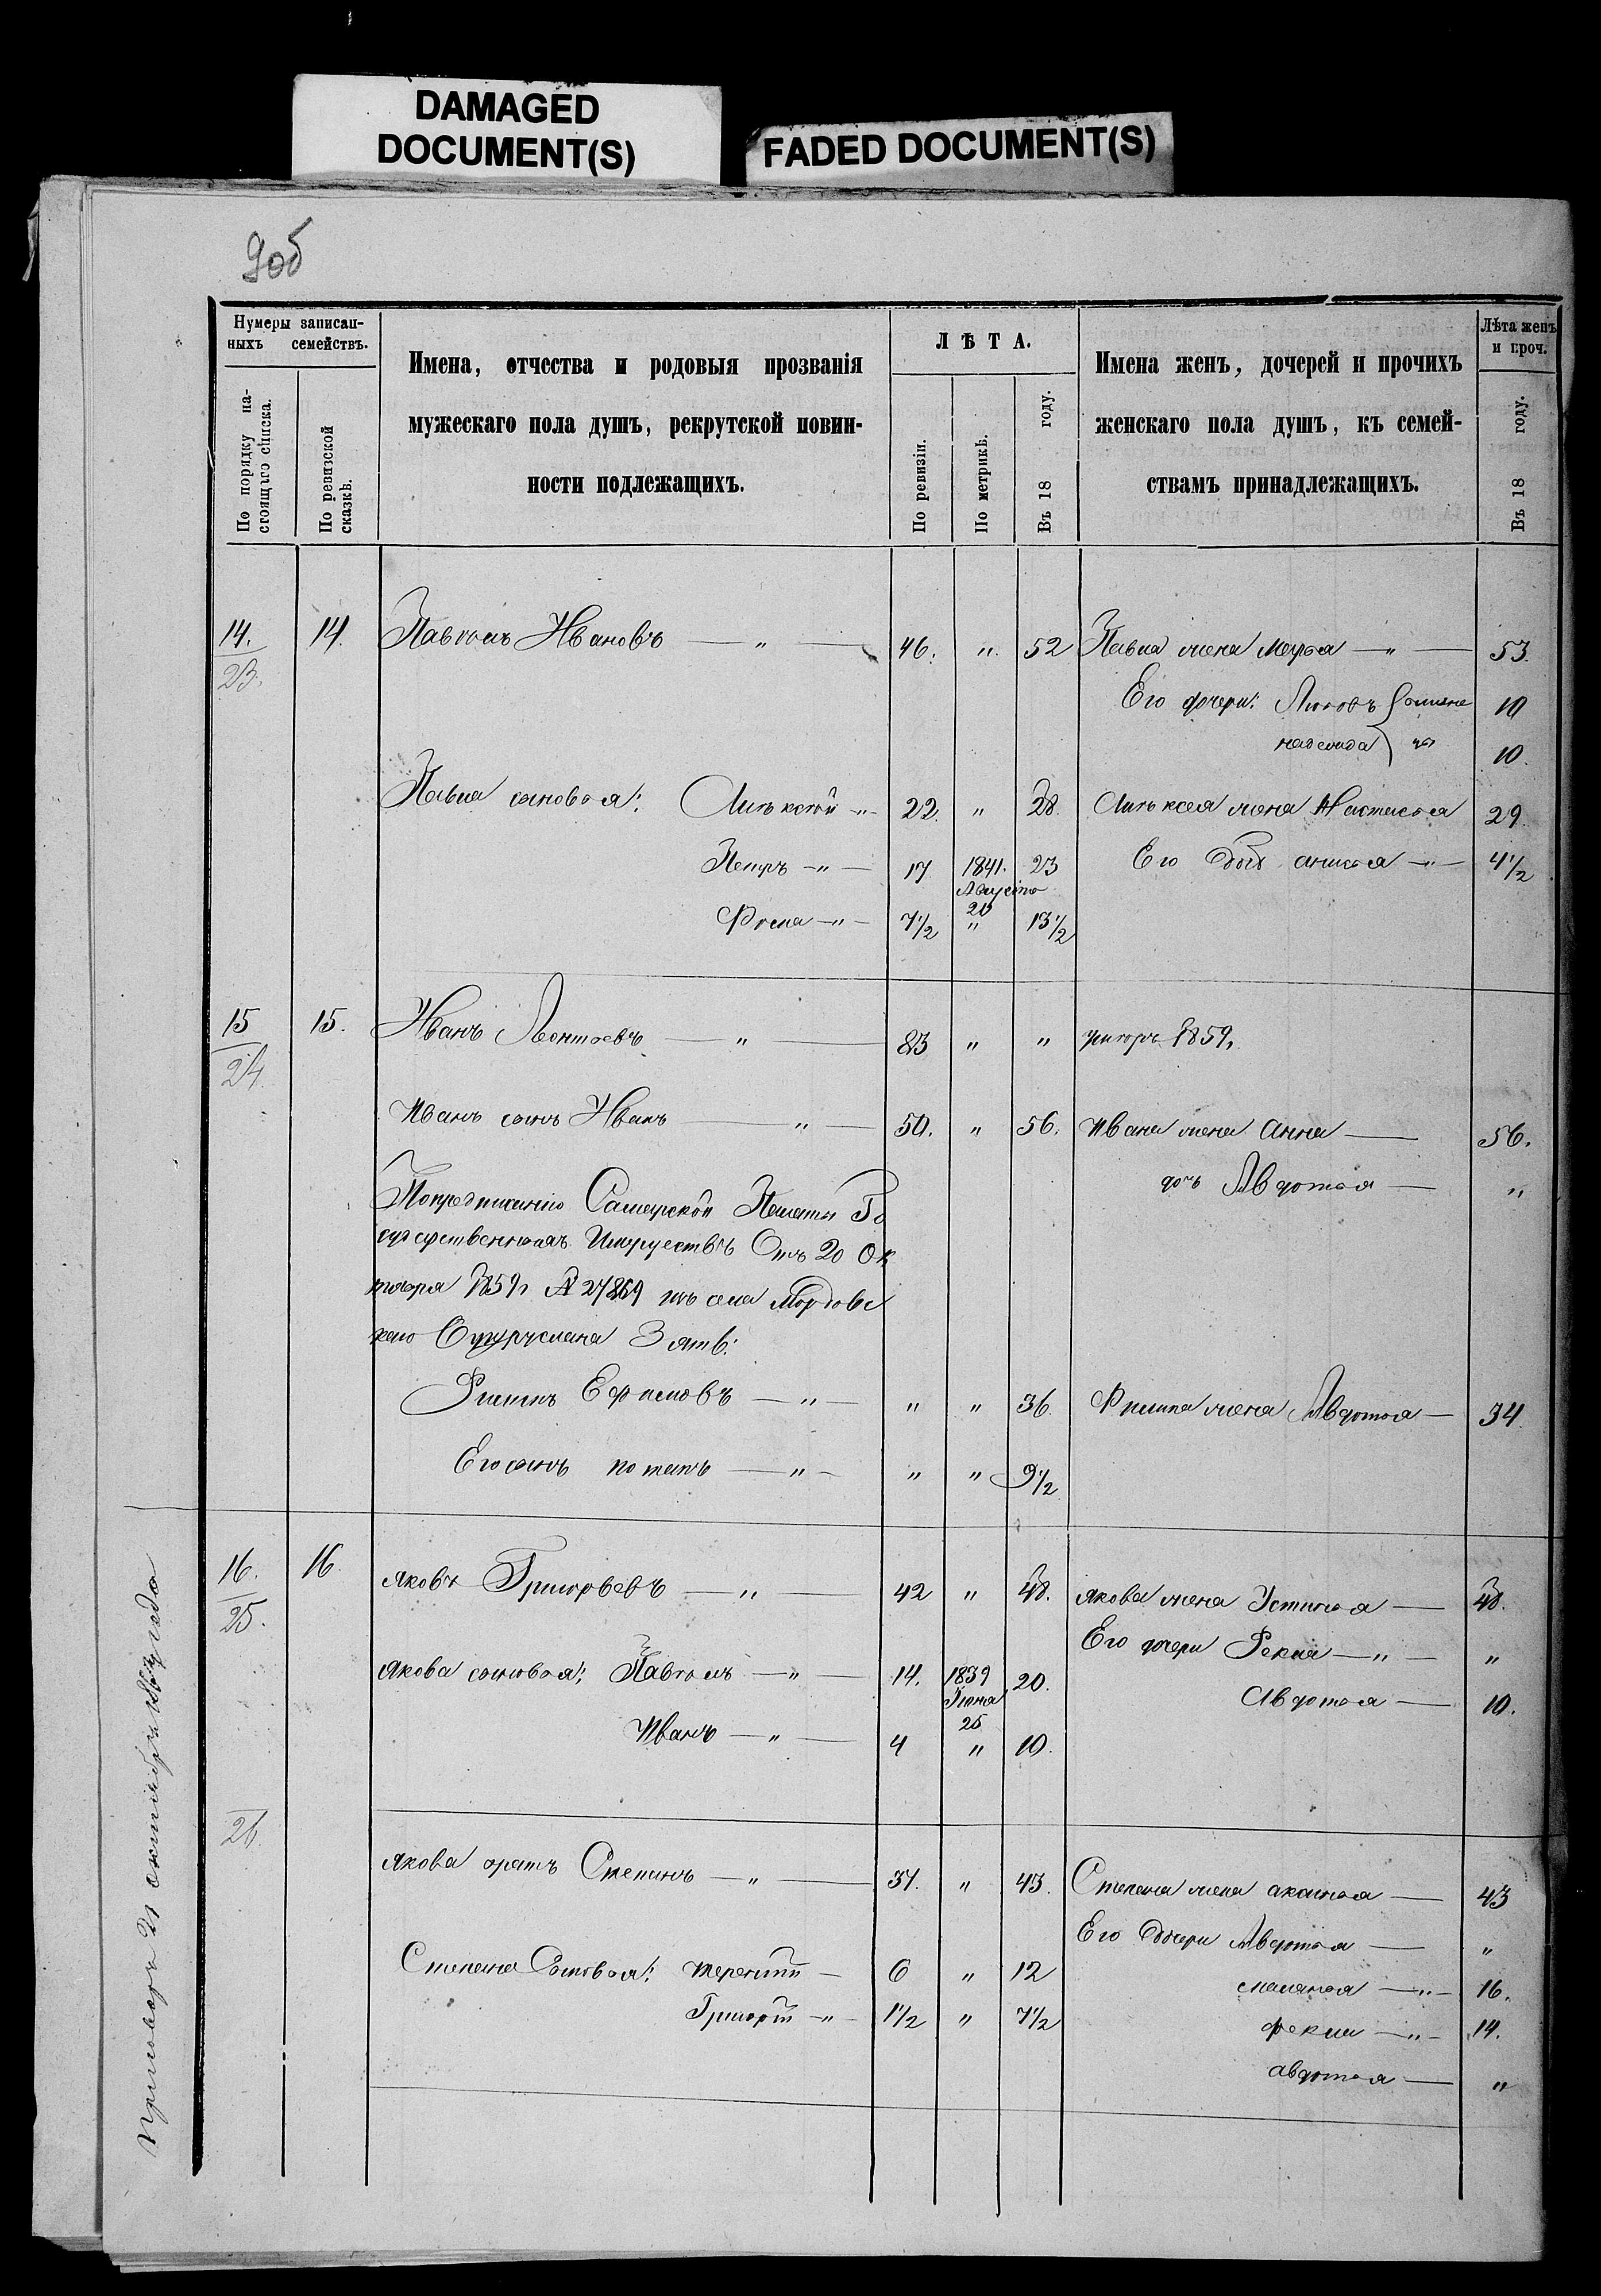 DAMAGED
DOCUMENT(S)
FADED DOCUMENT(S)
9об
Нумеры записан-
ныхъ семействъ.
По порядку на-
стоящаго списка.
По ревизской
сказкѣ.
Имена, отчества и родовыя прозванія
мужескаго пола душъ, рекрутской повин-
ности подлежащихъ.
ЛѢТА.
По ревизіи.
По метрикѣ.
Въ 18 году.
Имена женъ, дочерей и прочихъ
женскаго пола душъ, къ семей-
ствамъ принадлежащихъ.
Лѣта женъ
и проч.
Въ 18 году.
14. 14. Павелъ Ивановъ — " — 46. " 52 Павла жена Марья — " — 53.
23.
Его дочери: Любовь 10
надежда 10.
Павла сыновья: Алексѣй " 22. " 28. Алексея жена Настасья 29.
Петръ — " — 17 1841. Августа 20 23 Его дочь анисья — " — 4 1/2
Фома — " — 7 1/2 " 13 1/2
15 15. Иванъ Леонтьевъ — " — 83 " " умеръ 1859.
24.
Ивана сынъ Иванъ — " — 50. " 56. Ивана жена Анна — 56.
дочь Авдотья — "
Попредписанію Самарской Палаты Го
сударственныхъ Имуществъ Отъ 20 Ок
тября 1859 № 27869 изъ села Мордовс
каго Зять:
Филипъ Ефимовъ — " — " " 36. Филипа жена Авдотья — 34.
Его сынъ потапъ — " — " " 9 1/2
16. 16. Яковъ Григорьевъ — " — 42 " 48. Якова жена Устинья — 48.
25.
Его дочери Фекла — " — "
Якова сыновья: Павелъ — " — 14. 1839 Іюня 25 20. Авдотья — 10.
Иванъ — " — 4 " 10.
26.
Якова братъ Степанъ — " — 37. " 43. Степана жена — 43
Его дочери Авдотья — "
Степана Сыновья: терентій — 6 " 12 маланья — " — 16.
Григорій — " — 1 1/2 " 7 1/2 фекла — " — 14.
авдотья — "
Приговоръ 21 октября года